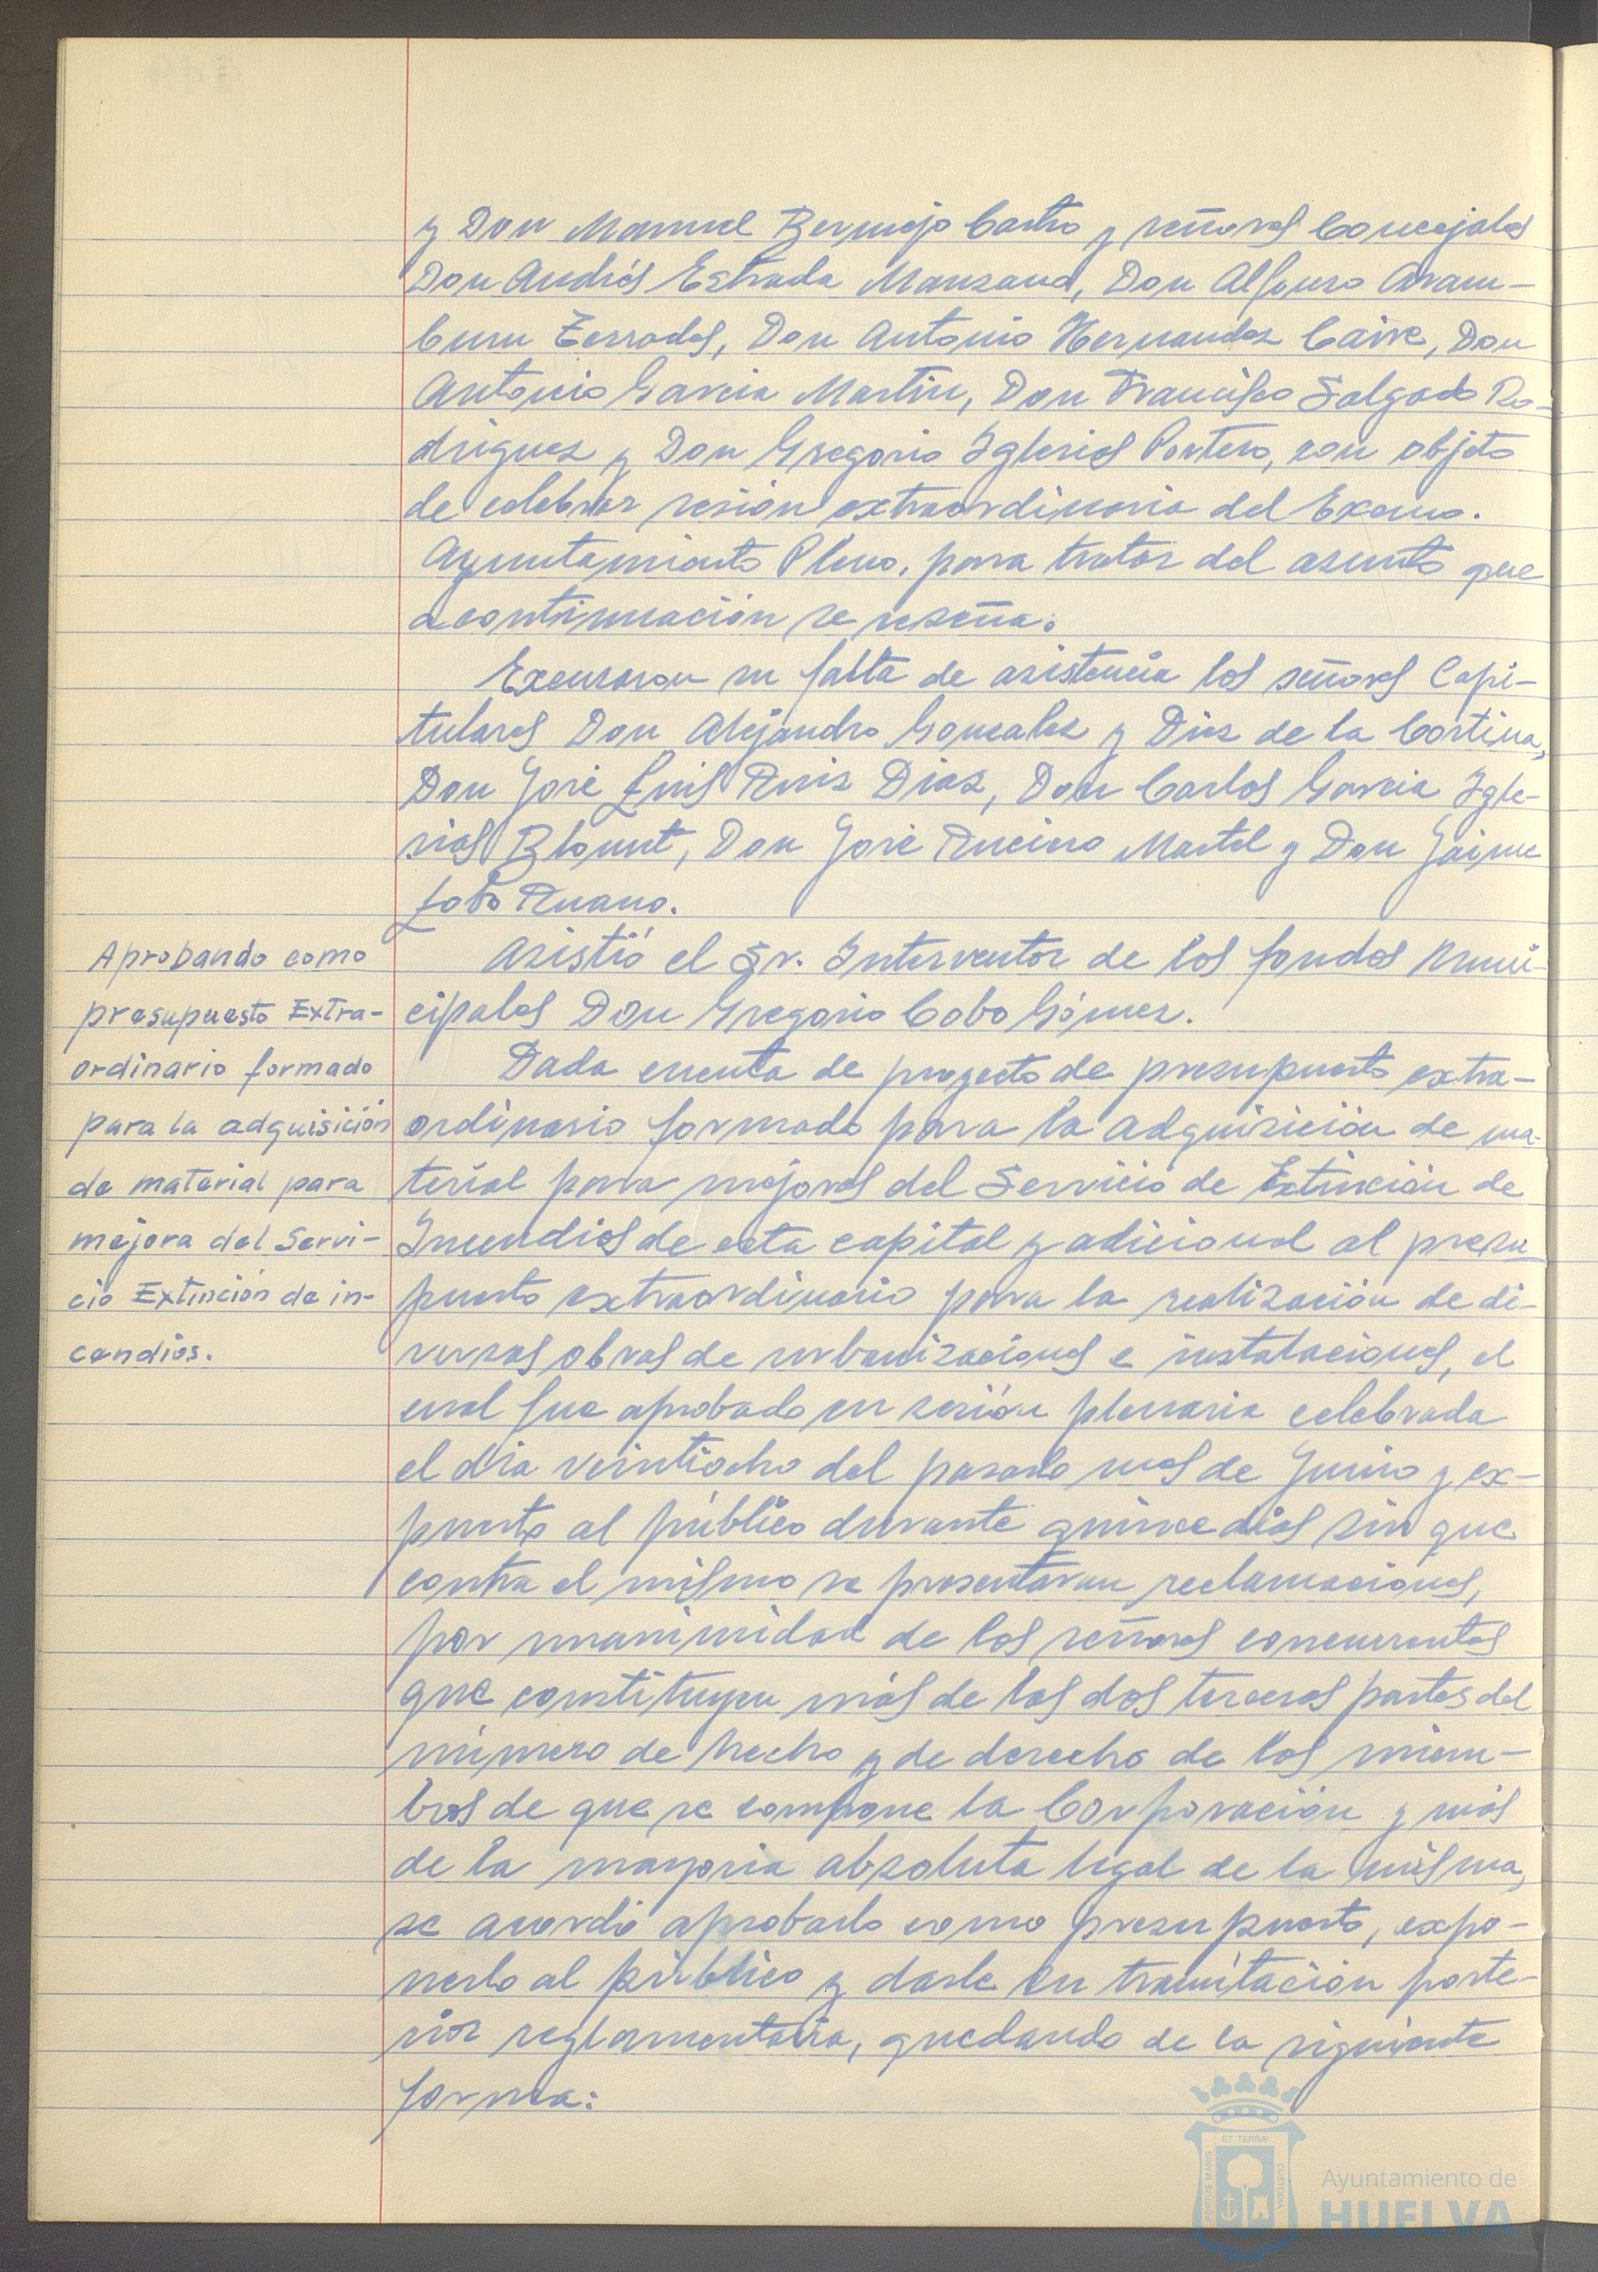 y Don Manuel Bermejo Castro y señores Concejales
Don Andrés Estrada Manzano, Don Alfonso Aram-
buru Terrades, Don Antonio Hernandez Caire, Don
Antonio Garcia Martin, Don Francisco Salgado Ro-
driguez y Don Gregorio Iglesias Portero, con objeto
de celebrar sesión extraordinaria del Excmo.
Ayuntamiento Pleno, para tratar del asunto que
a continuación se reseña.
Excusaron su falta de asistencia los señores Capi-
tulares Don Alejandro Gonzalez y Diez de la Cortina,
Don José Luis Ruiz Diaz, Don Carlos Garcia Igle-
sias Blount, Don José Ruciero Martel y Don Jaime
Lobo Ruano.
Asistió el Sr. Interventor de los fondos muni-
cipales Don Gregorio Cobo Gómez.
Aprobando como
presupuesto Extra-
ordinario formado
para la adquisición
de material para
mejora del Servi-
cio Extinción de in-
cendios.
Dada cuenta de proyecto de presupuesto extra-
ordinario formado para la adquisición de ma-
terial para mejoras del Servicio de Extinción de
Incendios de esta capital y adicional al presu-
puesto extraordinario para la realización de di-
versas obras de urbanizaciones e instalaciones, el
cual fue aprobado en sesión plenaria celebrada
el dia veintiocho del pasado mes de Junio y ex-
puesto al público durante quince dias sin que
contra el mismo se presentaran reclamaciones,
por unanimidad de los señores concurrentes
que constituyen más de las dos terceras partes del
número de hecho y de derecho de los miem-
bros de que se compone la Corporación y más
de la mayoria absoluta legal de la misma,
se acordó aprobarlo como presupuesto, expo-
nerlo al público y darle su tramitación poste-
rior reglamentaria, quedando de la siguiente
forma:
PORTUS MARIS
ET TERRÆ
CUSTODIA
Ayuntamiento de
HUELVA